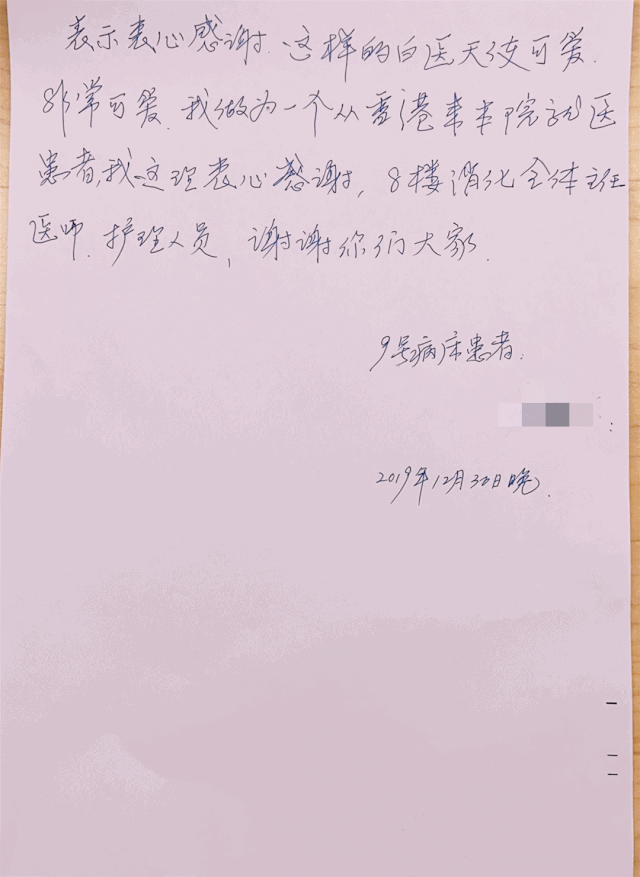 表示衷心感谢.这样的白医天使可爱.
非常可爱.我做为一个从香港来本院就医
患者,我这理衷心感谢,8楼消化全体主任
医师.护理人员,谢谢你们大家.
9号病床患者.
2019年12月30日晚.